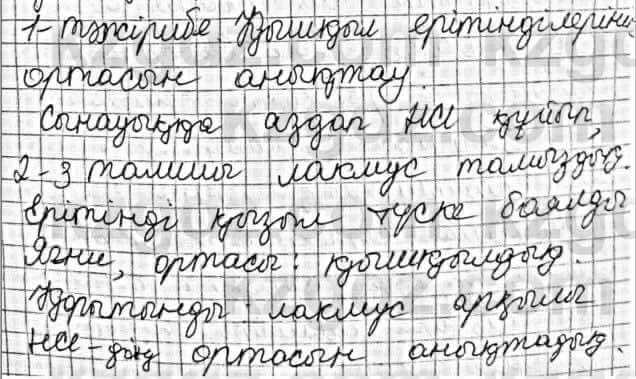 1-тәжірибе. Қышқыл ерітінділерінің
ортасын анықтау.
Сынауыққа аздап HCl құйып,
2-3 тамшы лакмус тамыздық.
Ерітінді қызыл түске боялды
Яғни, ортасы: қышқылдық.
Қорытынды: лакмус арқылы
HCl-дің ортасын анықтадық.